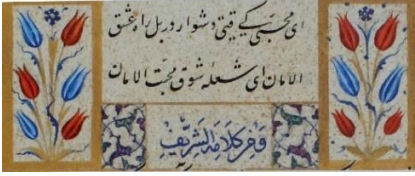 ای محبّی کی قتی دشوار در بل راه عشق
الامان ای شعلهٔ شوق محبّت الامان
كلامه الشريف